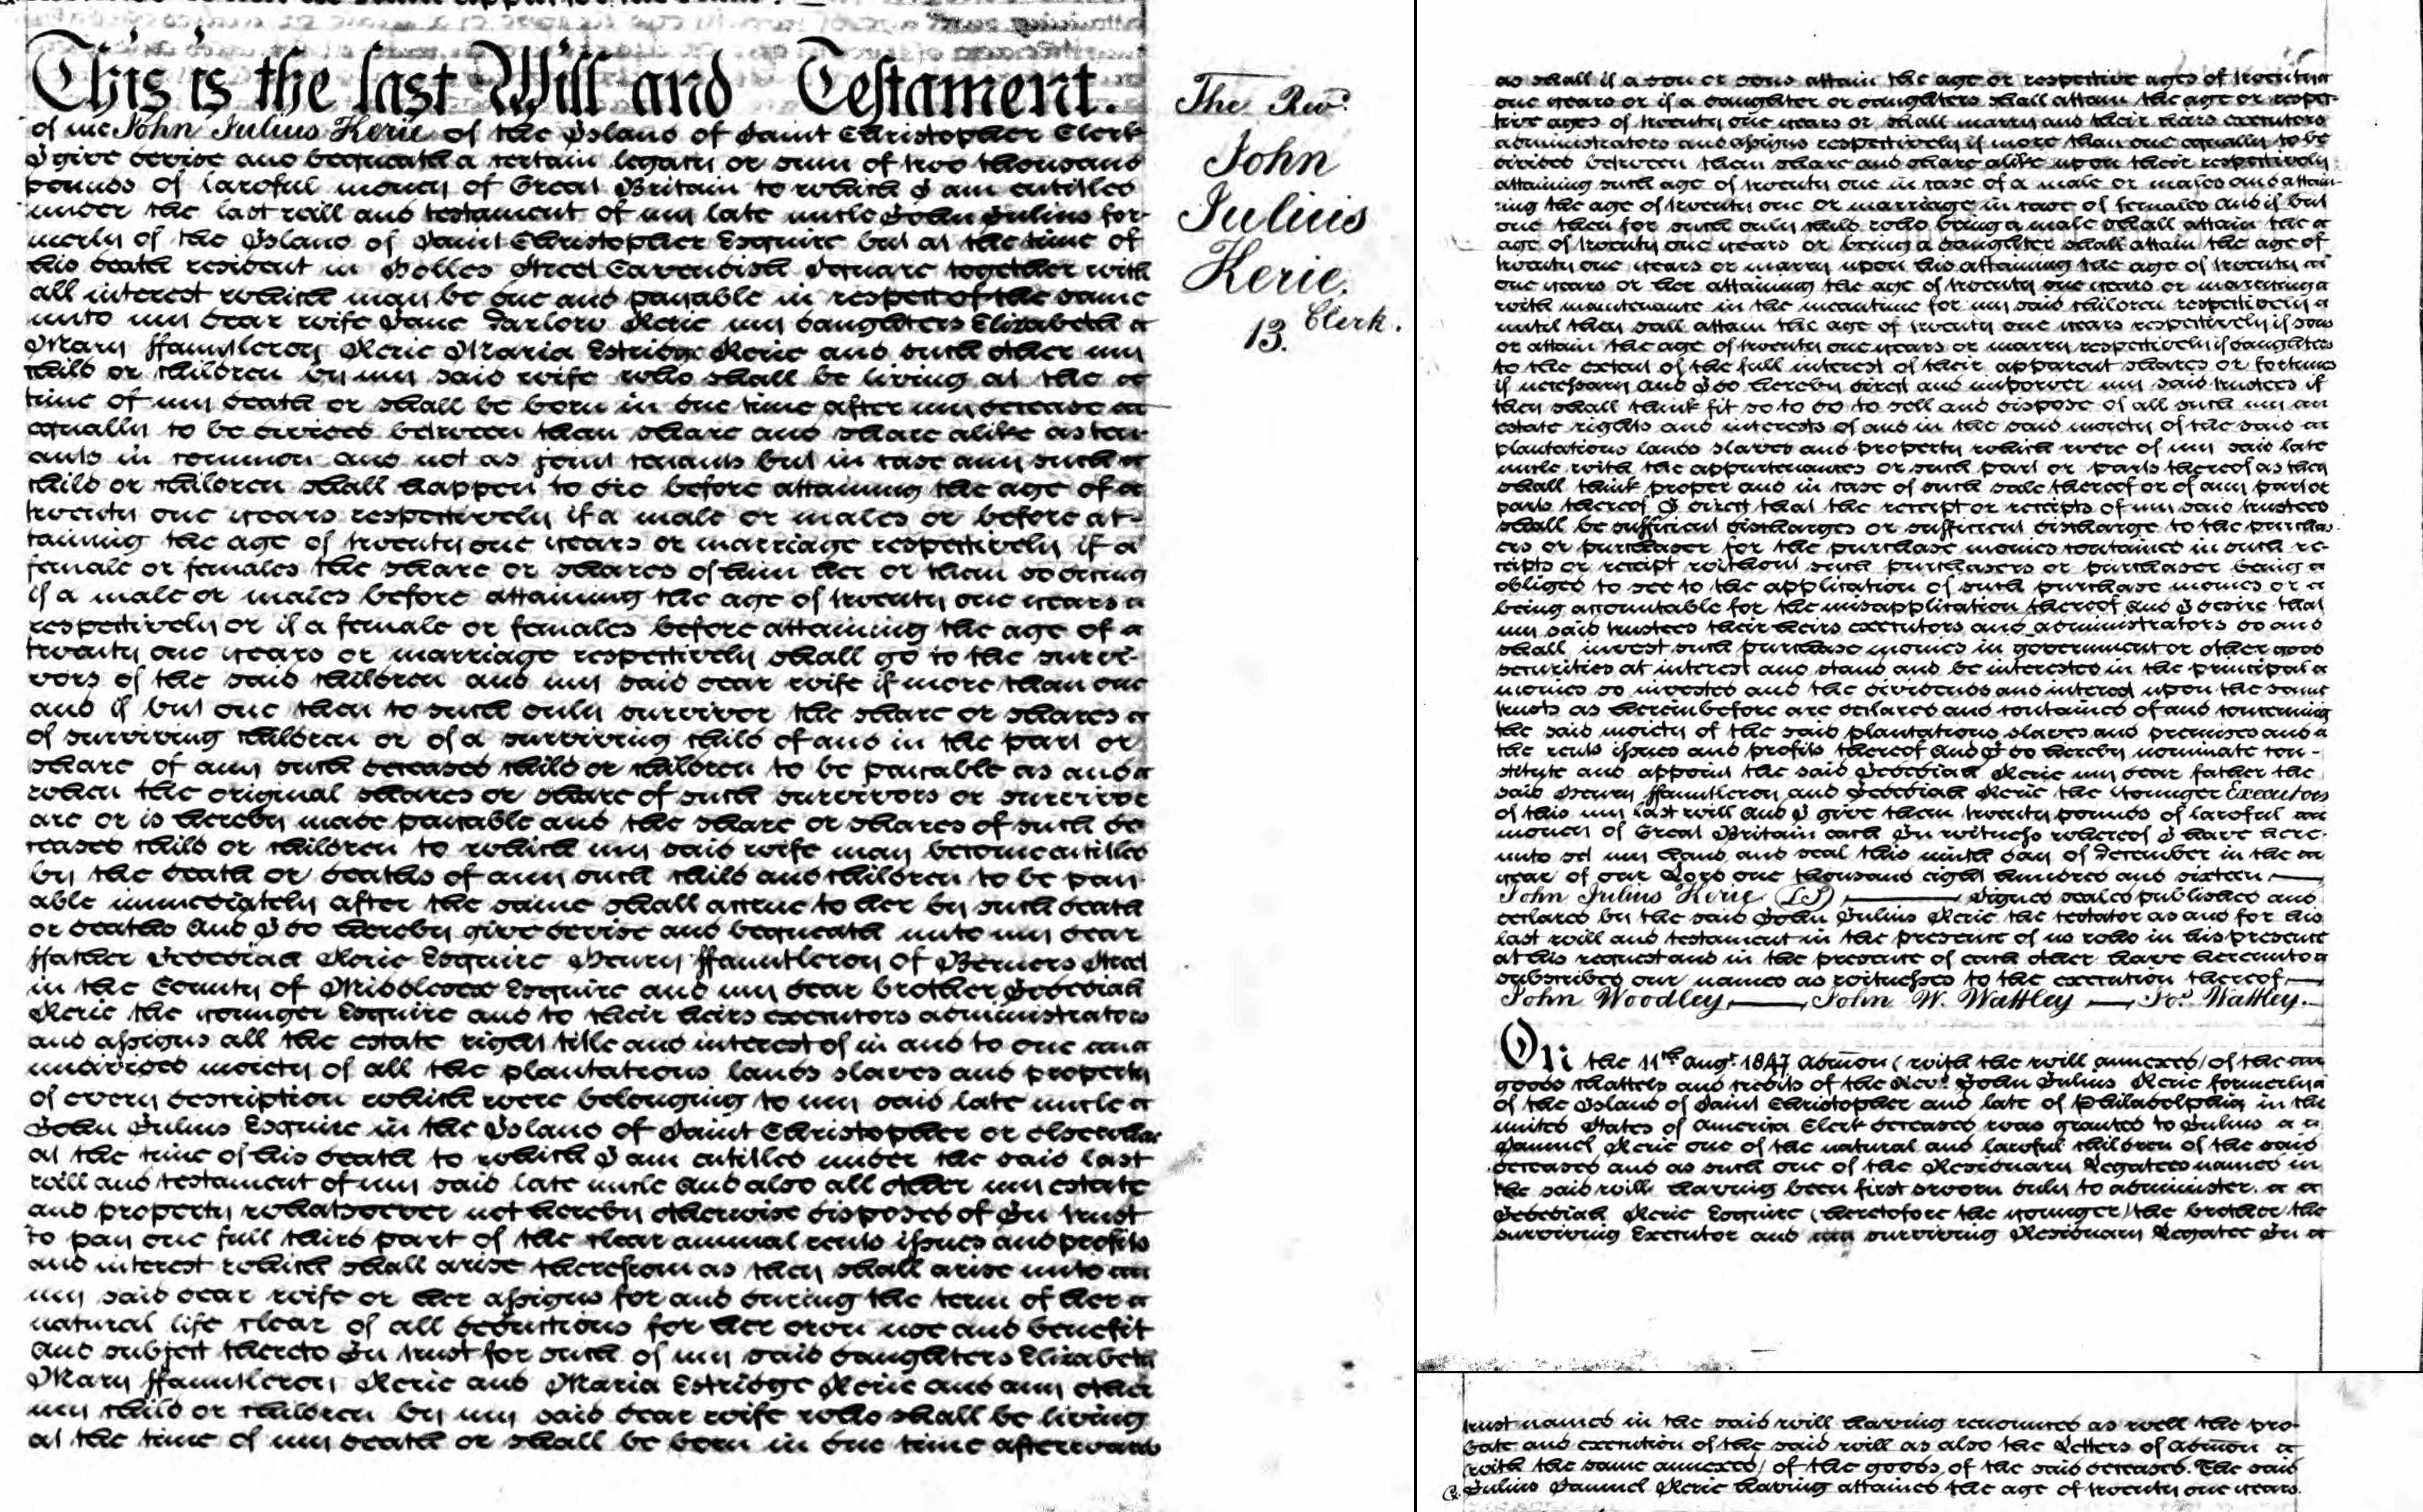 This is the last Will and Testament.
of me John Julius Kerie of the Island of Saint Christopher Clerk
I give devise and bequeath a certain legacy or sum of two thousand
pounds of lawful money of Great Britain to which I am entitled
under the last will and testament of my late uncle John Julius for-
merly of the Island of Saint Christopher Esquire but at the time of
his death resident in Holles Street Cavendish Square together with
all interest which may be due and payable in respect of the same
unto my dear wife Jane Tarlow Kerie my daughters Elizabeth
Mary ffauntleroy Kerie Maria Estridge Kerie and such other my
child or children by my said wife who shall be living at the
time of my death or shall be born in due time after my decease
equally to be divided between them share and share alike as ten-
ants in common and not as joint tenants but in case any such
child or children shall happen to die before attaining the age of
twenty one years respectively if a male or males or before at-
taining the age of twenty one years or marriage respectively if a
female or females the share or shares of him her or them so dying
if a male or males before attaining the age of twenty one years
respectively or if a female or females before attaining the age of
twenty one years or marriage respectively shall go to the survi-
vors of the said children and my said dear wife if more than one
and if but one then to such only survivor the share or shares
of surviving children or of a surviving child of and in the part or
share of any such deceased child or children to be payable as and
when the original shares or share of such survivors or survivor
are or is hereby made payable and the share or shares of such de
ceased child or children to which my said wife may become entitled
by the death or deaths of any such child and children to be pay-
able immediately after the same shall accrue to her by such death
or deaths And I do hereby give devise and bequeath unto my dear
ffather Jedediah Kerie Esquire Henry ffauntleroy of Berners Street
in the County of Middlesex Esquire and my dear brother Jedediah
Kerie the younger Esquire and to their heirs executors administrators
and assigns all the estate right title and interest of in and to one
undivided moiety of all the plantations lands slaves and property
of every description which were belonging to my said late uncle
John Julius Esquire in the Island of Saint Christopher or elsewhere
at the time of his death to which I am entitled under the said last
will and testament of my said late uncle And also all other my estate
and property whatsoever not hereby otherwise disposed of In trust
to pay one full third part of the clear annual rents issues and profits
and interest which shall arise therefrom as they shall arise unto
my said dear wife or her assigns for and during the term of her
natural life clear of all deductions for her own use and benefit
And subject thereto In trust for such of my said daughters Elizabeth
Mary ffauntleroy Kerie and Maria Estridge Kerie and any other
my child or children by my said dear wife who shall be living
at the time of my death or shall be born in due time afterwards
The Revd.
John
Julius
Kerie.
Clerk.
13.
as shall if a son or sons attain the age or respective ages of twenty
one years or if a daughter or daughters shall attain the age or respec-
tive ages of twenty one years or shall marry and their heirs executors
administrators and assigns respectively if more than one equally to be
divided between them share and share alike upon their respectively
attaining such age of twenty one in case of a male or males and attain-
ing the age of twenty one or marriage in case of females and if but
one then for such only child who being a male shall attain the
age of twenty one years or being a daughter shall attain the age of
twenty one years or marry upon his attaining the age of twenty
one years or her attaining the age of twenty one years or marrying
with maintenance in the meantime for my said children respectively
until they shall attain the age of twenty one years respectively if sons
or attain the age of twenty one years or marry respectively if daughters
to the extent of the full interest of their apparent shares or fortunes
if necessary And I do hereby direct and impower my said trustees if
they shall think fit so to do to sell and dispose of all such my
estate rights and interests of and in the said moiety of the said
plantations lands slaves and property which were of my said late
uncle with the appurtenances or such part or parts thereof as they
shall think proper and in case of such sale thereof or of any part or
parts thereof I direct that the receipt or receipts of my said trustees
shall be sufficient discharges or sufficient discharge to the purchas-
ers or purchaser for the purchase monies contained in such re-
ceipts or receipt without such purchasers or purchaser being
obliged to see to the application of such purchase monies or
being accountable for the misapplication thereof And I desire that
my said trustees their heirs executors and administrators do and
shall invest such purchase monies in government or other good
securities at interest and stand and be interested in the principal
monies so invested and the dividends and interest upon the same
trusts as hereinbefore are declared and contained of and concerning
the said moiety of the said plantations slaves and premises and
the rents issues and profits thereof And I do hereby nominate con-
stitute and appoint the said Jedediah Kerie my dear father the
said Henry ffauntleroy and Jedediah Kerie the younger Executors
of this my last will And I give them twenty pounds of lawful
money of Great Britain each In witness whereof I have here-
unto set my hand and seal this ninth day of December in the
year of our Lord one thousand eight hundred and sixteen
John Julius Kerie (LS) Signed sealed published and
declared by the said John Julius Kerie the testator as and for his
last will and testament in the presence of us who in his presence
at his request and in the presence of each other have hereunto
subscribed our names as witnesses to the execution thereof
John Woodley John W. Wattley Jos. Wattley.
On the 11th Augt. 1847 Admon (with the will annexed) of the
goods chattels and credits of the Revd. John Julius Kerie formerly
of the Island of Saint Christopher and late of Philadelphia in the
united States of America Clerk deceased was granted to Julius
Samuel Kerie one of the natural and lawful children of the said
deceased and as such one of the Residuary Legatees named in
the said will having been first sworn duly to administer.
Jedediah Kerie Esquire (heretofore the younger) the brother the
surviving Executor and surviving Residuary Legatee In
trust named in the said will having renounced as well the pro-
bate and execution of the said will as also the Letters of admon
(with the same annexed) of the goods of the said deceased. The said
Julius Samuel Kerie having attained the age of twenty one years.